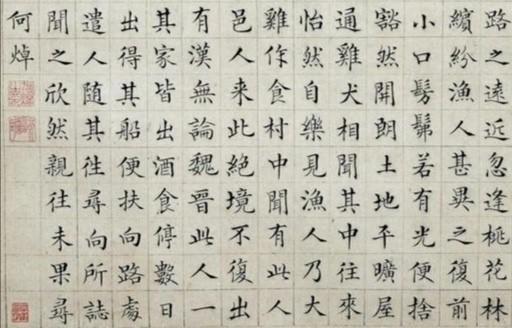 路之遠近忽逢桃花林
繽紛漁人甚異之復前
小口髣髴若有光便捨
豁然開朗土地平曠屋
通雞犬相聞其中往來
怡然自樂見漁人乃大
雞作食村中聞有此人
邑人來此絕境不復出
有漢無論魏晉此人一
其家皆出酒食停數日
出得其船便扶向路處
遣人隨其往尋向所誌
聞之欣然親往未果尋
何焯